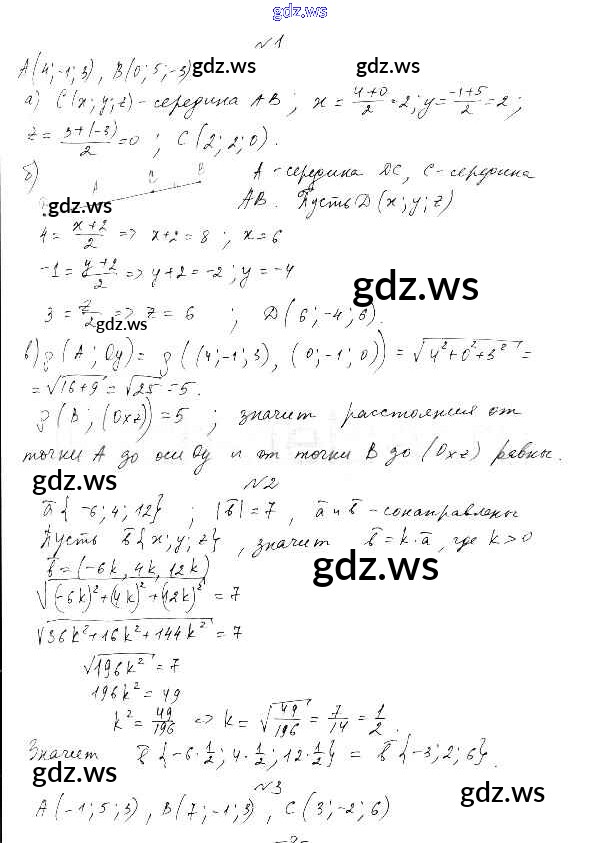 gdz.ws
№1
A(4;-1;3), B(0;5;-3) gdz.ws
а) C(x;y;z)-середина AB; x = \frac{4+0}{2} = 2; y = \frac{-1+5}{2} = 2;
z = \frac{3+(-3)}{2} = 0; C(2;2;0).
б) A-середина DC, C-середина
AB. Пусть D(x;y;z)
gdz.ws
4 = \frac{x+2}{2} => x+2 = 8; x = 6
-1 = \frac{y+2}{2} => y+2 = -2; y = -4
gdz.ws
3 = \frac{z}{2} => z = 6; D(6;-4;6).
gdz.ws
в) ρ(A; Oy) = ρ((4;-1;3), (0;-1;0)) = \sqrt{4^2+0^2+3^2} =
= \sqrt{16+9} = \sqrt{25} = 5.
ρ(B; (Oxz)) = 5; значит расстояния от
точки A до оси Oy и от точки B до (Oxz) равны.
gdz.ws
№2
gdz.ws
a̅{-6;4;12}; |b̅| = 7, a̅ и b̅ - сонаправлены
Пусть b̅{x;y;z}, значит b̅ = k·a̅, где k>0
b̅ = (-6k, 4k, 12k)
gdz.ws
\sqrt{(-6k)^2+(4k)^2+(12k)^2} = 7
gdz.ws
\sqrt{36k^2+16k^2+144k^2} = 7
\sqrt{196k^2} = 7
196k^2 = 49
k^2 = \frac{49}{196} <=> k = \sqrt{\frac{49}{196}} = \frac{7}{14} = \frac{1}{2}.
Значит b̅{-6·\frac{1}{2}; 4·\frac{1}{2}; 12·\frac{1}{2}} = b̅{-3;2;6}.
gdz.ws
№3
gdz.ws
A(-1;5;3), B(7;-1;3), C(3;-2;6)
-2-
gdz.ws